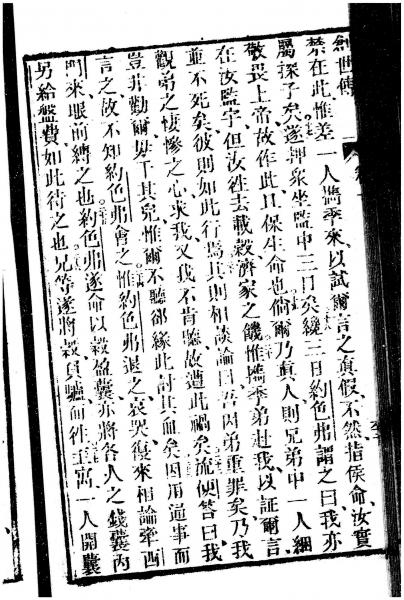 創世傳
禁在此惟差一人將季來以試爾言之真假不然指侯命汝實
屬探子矣遂押眾坐監中三日矣纔三日約色弗謂之曰我亦
敬畏上帝故作此且保生命也倘爾乃真人則兄弟中一人綑
在汝監宇但汝徃去載穀濟家之饑惟攜季弟赴我以証爾言
並不死矣彼則如此行焉其則相談論曰吾因弟重罪矣乃我
觀弟之悽慘之心求我又我不肯聽故遭此禍矣流便答曰我
豈非勸爾毋干其兒惟爾不聽卻緣此討其血矣因用通事而
言之故不知約色弗會之惟約色弗退之哀哭復來相論牽西
門來眼前縛之也約色弗遂命以穀盈囊亦將各人之錢囊內
另給盤費如此待之也兄等遂將穀負驢而徃至寓一人開囊